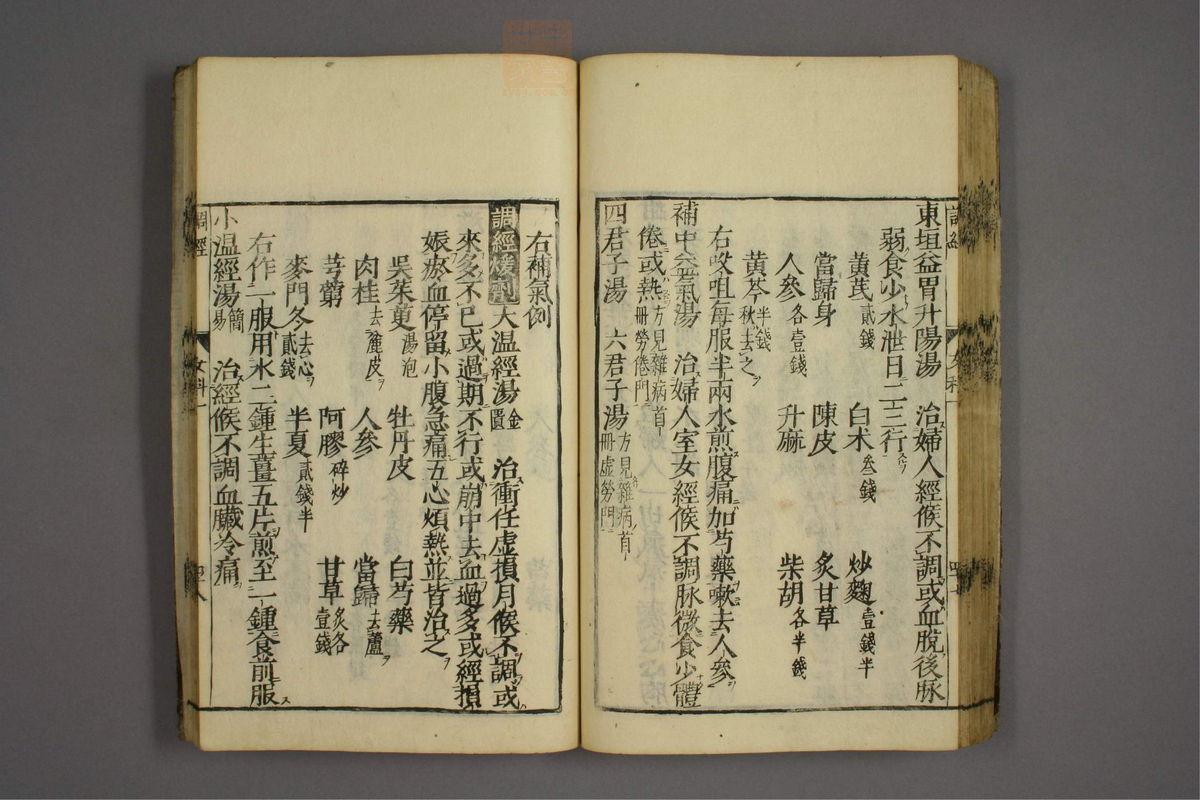 東垣益胃升陽湯 治婦人經候不調或血脫後脉
弱食少水泄日二三行
黃芪貳錢 白朮叁錢 炒麴壹錢半
當歸身 陳皮 炙甘草
人參各壹錢 升麻 柴胡各半錢
黃芩半錢秋去之
右㕮咀每服半兩水煎腹痛加芍藥嗽去人參
補中益氣湯 治婦人室女經候不調脉微食少體
倦或熱方見雜病首冊勞倦門
四君子湯 六君子湯方見雜病首冊虛勞門
右補氣例
調經煖劑 大温經湯金匱 治衝任虛損月候不調或
來多不已或過期不行或崩中去血過多或經損
娠瘀血停留小腹急痛五心煩熱並皆治之
吳茱萸湯泡 牡丹皮 白芍藥
肉桂去麄皮 人參 當歸去蘆
芎藭 阿膠碎炒 甘草炙各壹錢
麥門冬去心貳錢 半夏貳錢半
右作一服用水二鍾生薑五片煎至一鍾食前服
小温經湯簡易 治經候不調血臟冷痛
調經 女科一